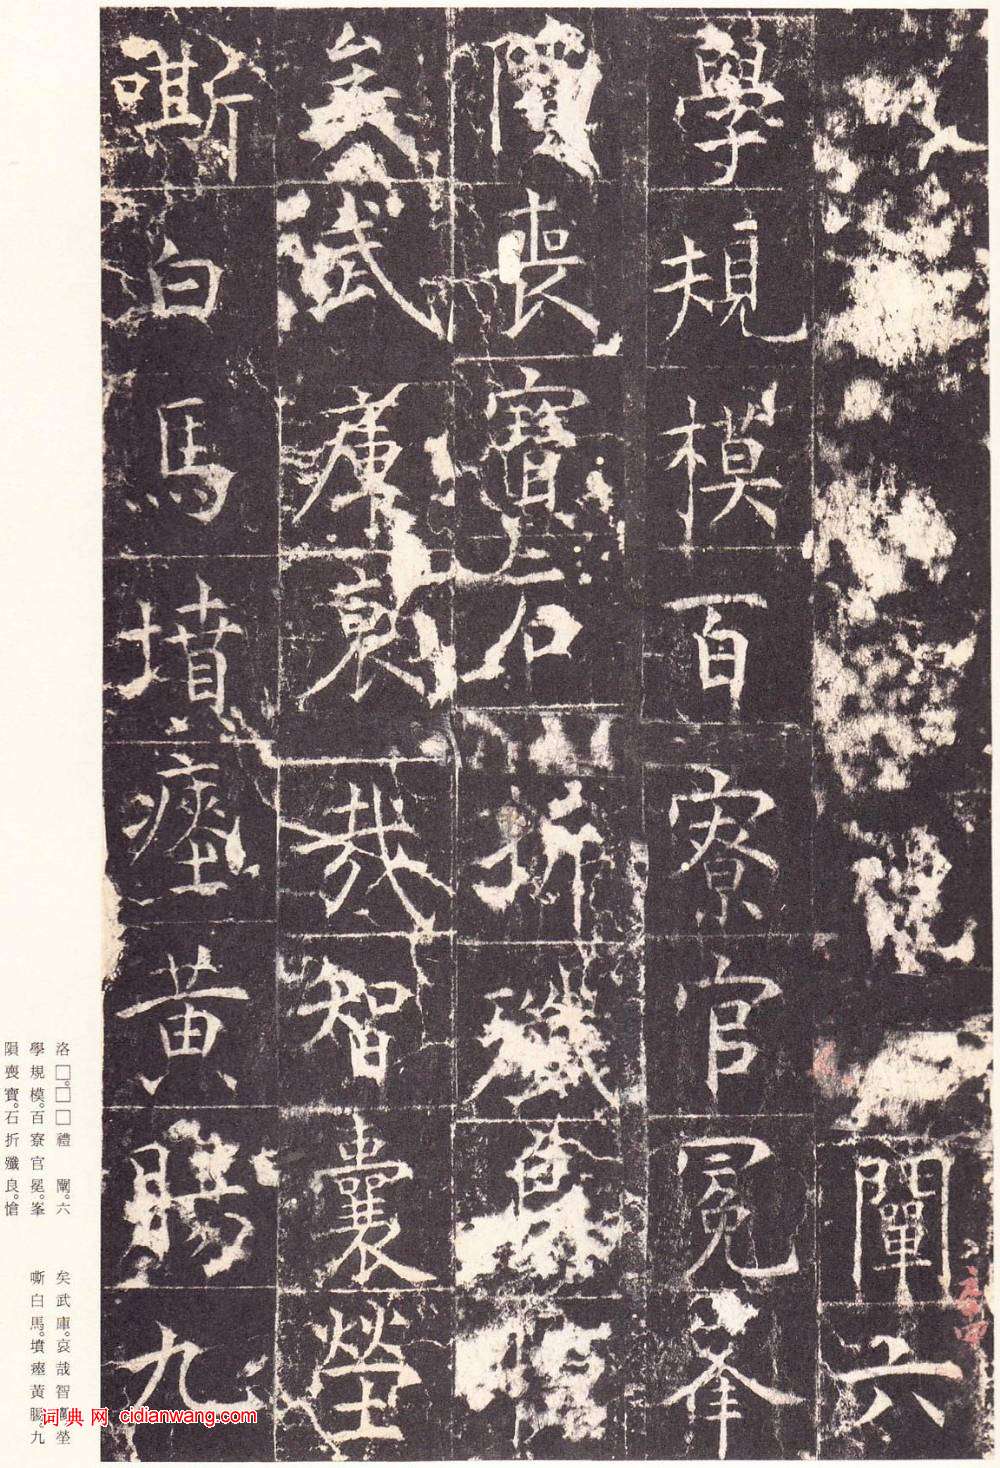 禮闡六
學規模百寮官冕峯
隕喪寶石折殲良愴
矣武庫哀哉智囊塋
嘶白馬墳瘞黃腸九
洛□。□□禮 闡。六
學規模。百寮官冕。峯
隕喪寶。石折殲良。愴
矣武庫。哀哉智囊。塋
嘶白馬。墳瘞黃腸。九
词典网 cidianwang.com